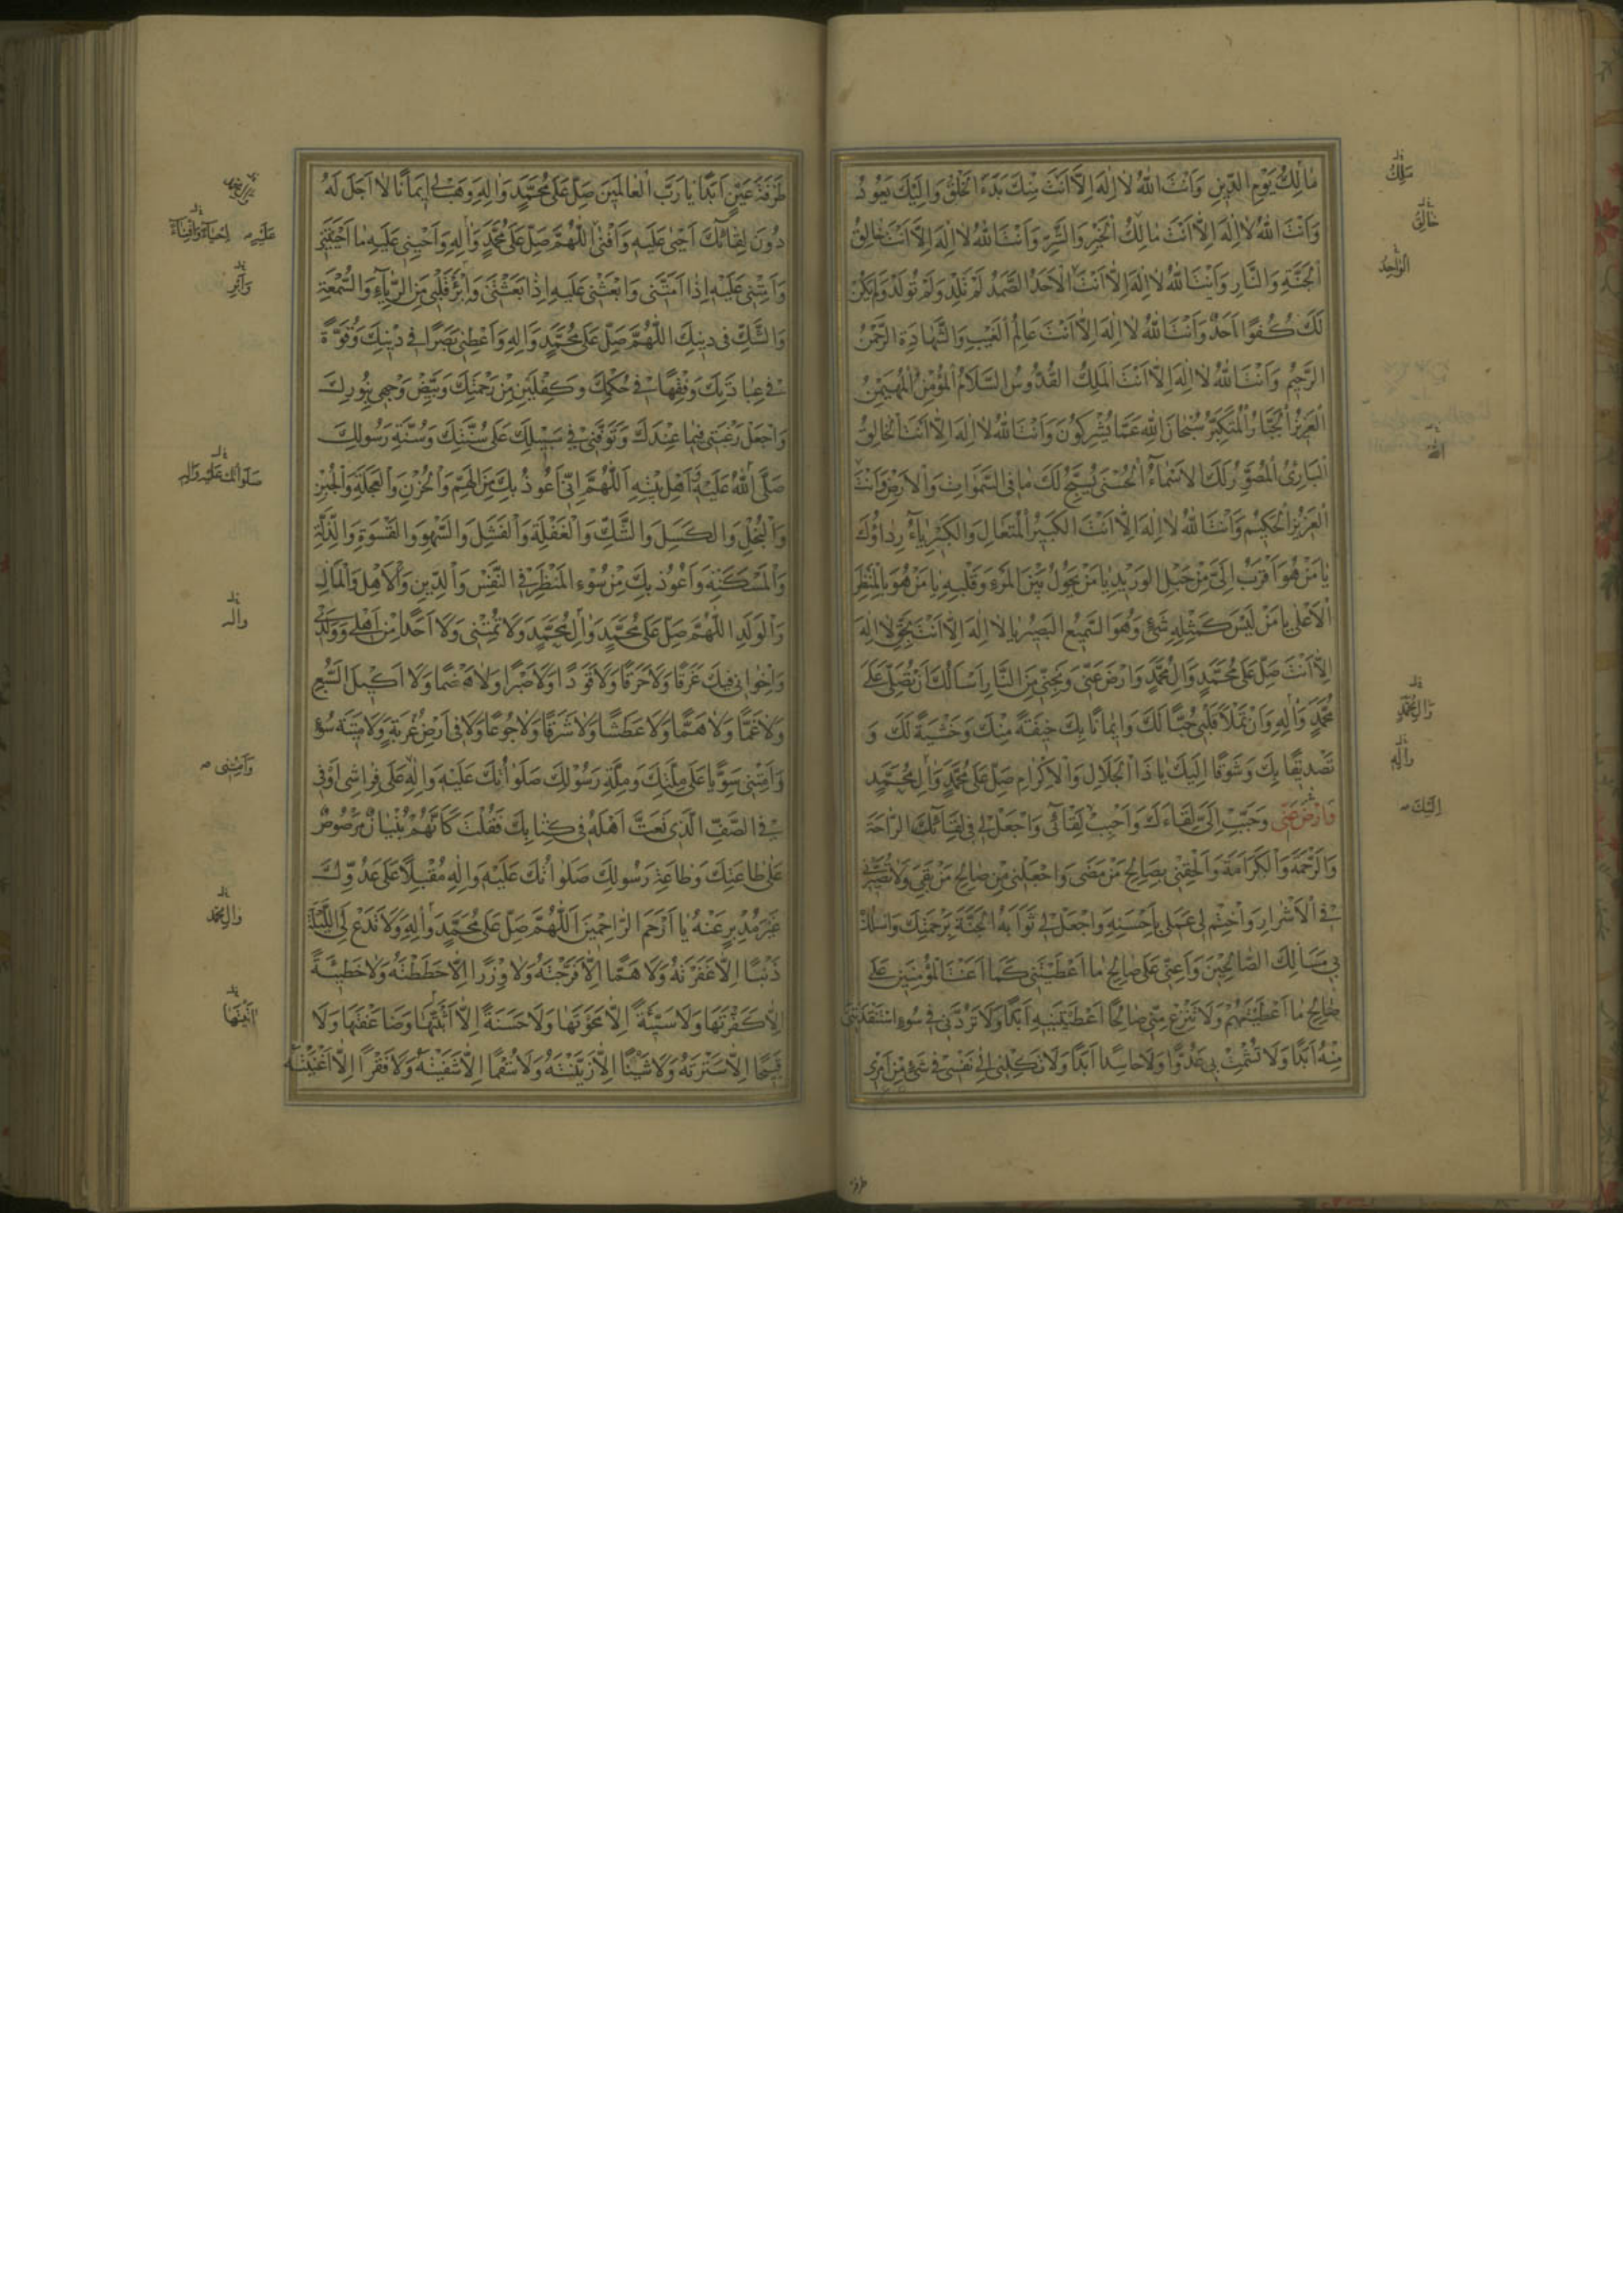 مَالِكُ يَوْمِ الدِّينِ وَاَنْتَ اللهُ لَا اِلٰهَ اِلَّا اَنْتَ مِنْكَ بَدَءَ الْخَلْقُ وَاِلَيْكَ يَعُودُ
وَاَنْتَ اللهُ لَا اِلٰهَ اِلَّا اَنْتَ مَالِكُ الْخَيْرِ وَالشَّرِّ وَاَنْتَ اللهُ لَا اِلٰهَ اِلَّا اَنْتَ خَالِقُ
الْجَنَّةِ وَالنَّارِ وَاَنْتَ اللهُ لَا اِلٰهَ اِلَّا اَنْتَ الْاَحَدُ الصَّمَدُ لَمْ تَلِدْ وَلَمْ تُولَدْ وَلَمْ يَكُنْ
لَكَ كُفُوًا اَحَدٌ وَاَنْتَ اللهُ لَا اِلٰهَ اِلَّا اَنْتَ عَالِمُ الْغَيْبِ وَالشَّهَادَةِ الرَّحْمٰنُ
الرَّحِيمُ وَاَنْتَ اللهُ لَا اِلٰهَ اِلَّا اَنْتَ الْمَلِكُ الْقُدُّوسُ السَّلَامُ الْمُؤْمِنُ الْمُهَيْمِنُ
الْعَزِيزُ الْجَبَّارُ الْمُتَكَبِّرُ سُبْحَانَ اللهِ عَمَّا يُشْرِكُونَ وَاَنْتَ اللهُ لَا اِلٰهَ اِلَّا اَنْتَ الْخَالِقُ
الْبَارِئُ الْمُصَوِّرُ لَكَ الْاَسْمَاءُ الْحُسْنٰى يُسَبِّحُ لَكَ مَا فِى السَّمٰوَاتِ وَالْاَرْضِ وَاَنْتَ
الْعَزِيزُ الْحَكِيمُ وَاَنْتَ اللهُ لَا اِلٰهَ اِلَّا اَنْتَ الْكَبِيرُ الْمُتَعَالِ وَالْكِبْرِيَاءُ رِدَاؤُكَ
يَا مَنْ هُوَ اَقْرَبُ اِلَىَّ مِنْ حَبْلِ الْوَرِيدِ يَا مَنْ يَحُولُ بَيْنَ الْمَرْءِ وَقَلْبِهِ يَا مَنْ هُوَ بِالْمَنْظَرِ
الْاَعْلٰى يَا مَنْ لَيْسَ كَمِثْلِهِ شَىْءٌ وَهُوَ السَّمِيعُ الْبَصِيرُ يَا لَا اِلٰهَ اِلَّا اَنْتَ بِحَقِّ لَا اِلٰهَ
اِلَّا اَنْتَ صَلِّ عَلٰى مُحَمَّدٍ وَاٰلِ مُحَمَّدٍ وَارْضَ عَنِّى وَنَجِّنِى مِنَ النَّارِ اَسْاَلُكَ اَنْ تُصَلِّىَ عَلٰى
مُحَمَّدٍ وَاٰلِهِ وَاَنْ تَمْلَاَ قَلْبِى حُبًّا لَكَ وَاِيمَانًا بِكَ خِيفَةً مِنْكَ وَخَشْيَةً لَكَ وَ
تَصْدِيقًا بِكَ وَشَوْقًا اِلَيْكَ يَا ذَا الْجَلَالِ وَالْاِكْرَامِ صَلِّ عَلٰى مُحَمَّدٍ وَاٰلِ مُحَمَّدٍ
وَارْضَ عَنِّى وَحَبِّبْ اِلَىَّ لِقَاءَكَ وَاَحْبِبْ لِقَائِى وَاجْعَلْ لِى فِى لِقَائِكَ الرَّاحَةَ
وَالرَّحْمَةَ وَالْكَرَامَةَ وَاَلْحِقْنِى بِصَالِحِ مَنْ مَضٰى وَاجْعَلْنِى مِنْ صَالِحِ مَنْ بَقِىَ وَلَا تُصَيِّرْنِى
فِى الْاَشْرَارِ وَاخْتِمْ لِى عَمَلِى بِاَحْسَنِهِ وَاجْعَلْ لِى ثَوَابَهُ الْجَنَّةَ بِرَحْمَتِكَ وَاسْلُكْ
بِى مَسَالِكَ الصَّالِحِينَ وَاَعِنِّى عَلٰى صَالِحِ مَا اَعْطَيْتَنِى كَمَا اَعَنْتَ الْمُؤْمِنِينَ عَلٰى
صَالِحِ مَا اَعْطَيْتَهُمْ وَلَا تَنْزِعْ مِنِّى صَالِحًا اَعْطَيْتَنِيهِ اَبَدًا وَلَا تَرُدَّنِى فِى سُوءٍ اسْتَنْقَذْتَنِى
مِنْهُ اَبَدًا وَلَا تُشْمِتْ بِى عَدُوًّا وَلَا حَاسِدًا اَبَدًا وَلَا تَكِلْنِى اِلٰى نَفْسِى فِى شَىْءٍ مِنْ اَمْرِى
مَلِكُ
خَالِقُ
الْوَاحِدُ
الله
وَاٰلِ مُحَمَّدٍ
وَاٰلِهِ
اِلَيْكَ
طَرْفَةَ عَيْنٍ اَبَدًا يَا رَبَّ الْعَالَمِينَ صَلِّ عَلٰى مُحَمَّدٍ وَاٰلِهِ وَهَبْ لِى اِيمَانًا لَا اَجَلَ لَهُ
دُونَ لِقَائِكَ اَحْيٰى عَلَيْهِ وَاَفْنٰى اللّٰهُمَّ صَلِّ عَلٰى مُحَمَّدٍ وَاٰلِهِ وَاَحْيِنِى عَلَيْهِ مَا اَحْيَيْتَنِى
وَاَمِتْنِى عَلَيْهِ اِذَا اَمَتَّنِى وَابْعَثْنِى عَلَيْهِ اِذَا بَعَثْتَنِى وَابْرَءْ قَلْبِى مِنَ الرِّيَاءِ وَالسُّمْعَةِ
وَالشَّكِّ فِى دِينِكَ اللّٰهُمَّ صَلِّ عَلٰى مُحَمَّدٍ وَاٰلِهِ وَاَعْطِنِى بَصَرًا فِى دِينِكَ وَقُوَّةً
فِى عِبَادَتِكَ وَفِقْهًا فِى حُكْمِكَ وَكِفْلَيْنِ مِنْ رَحْمَتِكَ وَبَيِّضْ وَجْهِى بِنُورِكَ
وَاجْعَلْ رَغْبَتِى فِيمَا عِنْدَكَ وَتَوَفَّنِى فِى سَبِيلِكَ عَلٰى سُنَّتِكَ وَسُنَّةِ رَسُولِكَ
صَلَّى اللهُ عَلَيْهِ وَاَهْلِ بَيْتِهِ اَللّٰهُمَّ اِنِّى اَعُوذُ بِكَ مِنَ الْهَمِّ وَالْحُزْنِ وَالْعَجَلَةِ وَالْجُبْنِ
وَالْبُخْلِ وَالْكَسَلِ وَالشَّكِّ وَالْغَفْلَةِ وَالْفَشَلِ وَالسَّهْوِ وَالْقَسْوَةِ وَالذِّلَّةِ
وَالْمَسْكَنَةِ وَاَعُوذُ بِكَ مِنْ سُوءِ الْمَنْظَرِ فِى النَّفْسِ وَالدِّينِ وَالْاَهْلِ وَالْمَالِ
وَالْوَلَدِ اللّٰهُمَّ صَلِّ عَلٰى مُحَمَّدٍ وَاٰلِ مُحَمَّدٍ وَلَا تُمِتْنِى وَلَا اَحَدًا مِنْ اَهْلِى وَوَلَدِى
وَاِخْوَانِى فِيكَ غَرَقًا وَلَا حَرَقًا وَلَا قَوَدًا وَلَا صَبْرًا وَلَا هَضْمًا وَلَا اَكِيلَ السَّبُعِ
وَلَا غَمًّا وَلَا هَمًّا وَلَا عَطَشًا وَلَا شَرَقًا وَلَا جُوعًا وَلَا فِى اَرْضِ غُرْبَةٍ وَلَا مِيتَةَ سُوءٍ
وَاَمِتْنِى سَوِيًّا عَلٰى مِلَّتِكَ وَمِلَّةِ رَسُولِكَ صَلَوَاتُكَ عَلَيْهِ وَاٰلِهِ عَلٰى فِرَاشِى اَوْ فِى
فِى الصَّفِّ الَّذِى نَعَتَّ اَهْلَهُ فِى كِتَابِكَ فَقُلْتَ كَاَنَّهُمْ بُنْيَانٌ مَرْصُوصٌ
عَلٰى طَاعَتِكَ وَطَاعَةِ رَسُولِكَ صَلَوَاتُكَ عَلَيْهِ وَاٰلِهِ مُقْبِلًا عَلٰى عَدُوِّكَ
غَيْرَ مُدْبِرٍ عَنْهُ يَا اَرْحَمَ الرَّاحِمِينَ اَللّٰهُمَّ صَلِّ عَلٰى مُحَمَّدٍ وَاٰلِهِ وَلَا تَدَعْ لِى اللَّيْلَةَ
ذَنْبًا اِلَّا غَفَرْتَهُ وَلَا هَمًّا اِلَّا فَرَّجْتَهُ وَلَا وِزْرًا اِلَّا حَطَطْتَهُ وَلَا خَطِيئَةً
اِلَّا كَفَّرْتَهَا وَلَا سَيِّئَةً اِلَّا مَحَوْتَهَا وَلَا حَسَنَةً اِلَّا اَثْبَتَّهَا وَضَاعَفْتَهَا وَلَا
قَبِيحًا اِلَّا سَتَرْتَهُ وَلَا شَيْنًا اِلَّا زَيَّنْتَهُ وَلَا سُقْمًا اِلَّا شَفَيْتَهُ وَلَا فَقْرًا اِلَّا اَغْنَيْتَهُ
عَلَيْهِ اِحْيَاءً وَاِفْنَاءً
وَاَبْرِ
صَلَوَاتُكَ عَلَيْهِ وَاٰلِهِ
وَاٰلِهِ
وَاَمِتْنِى
وَاٰلِ مُحَمَّدٍ